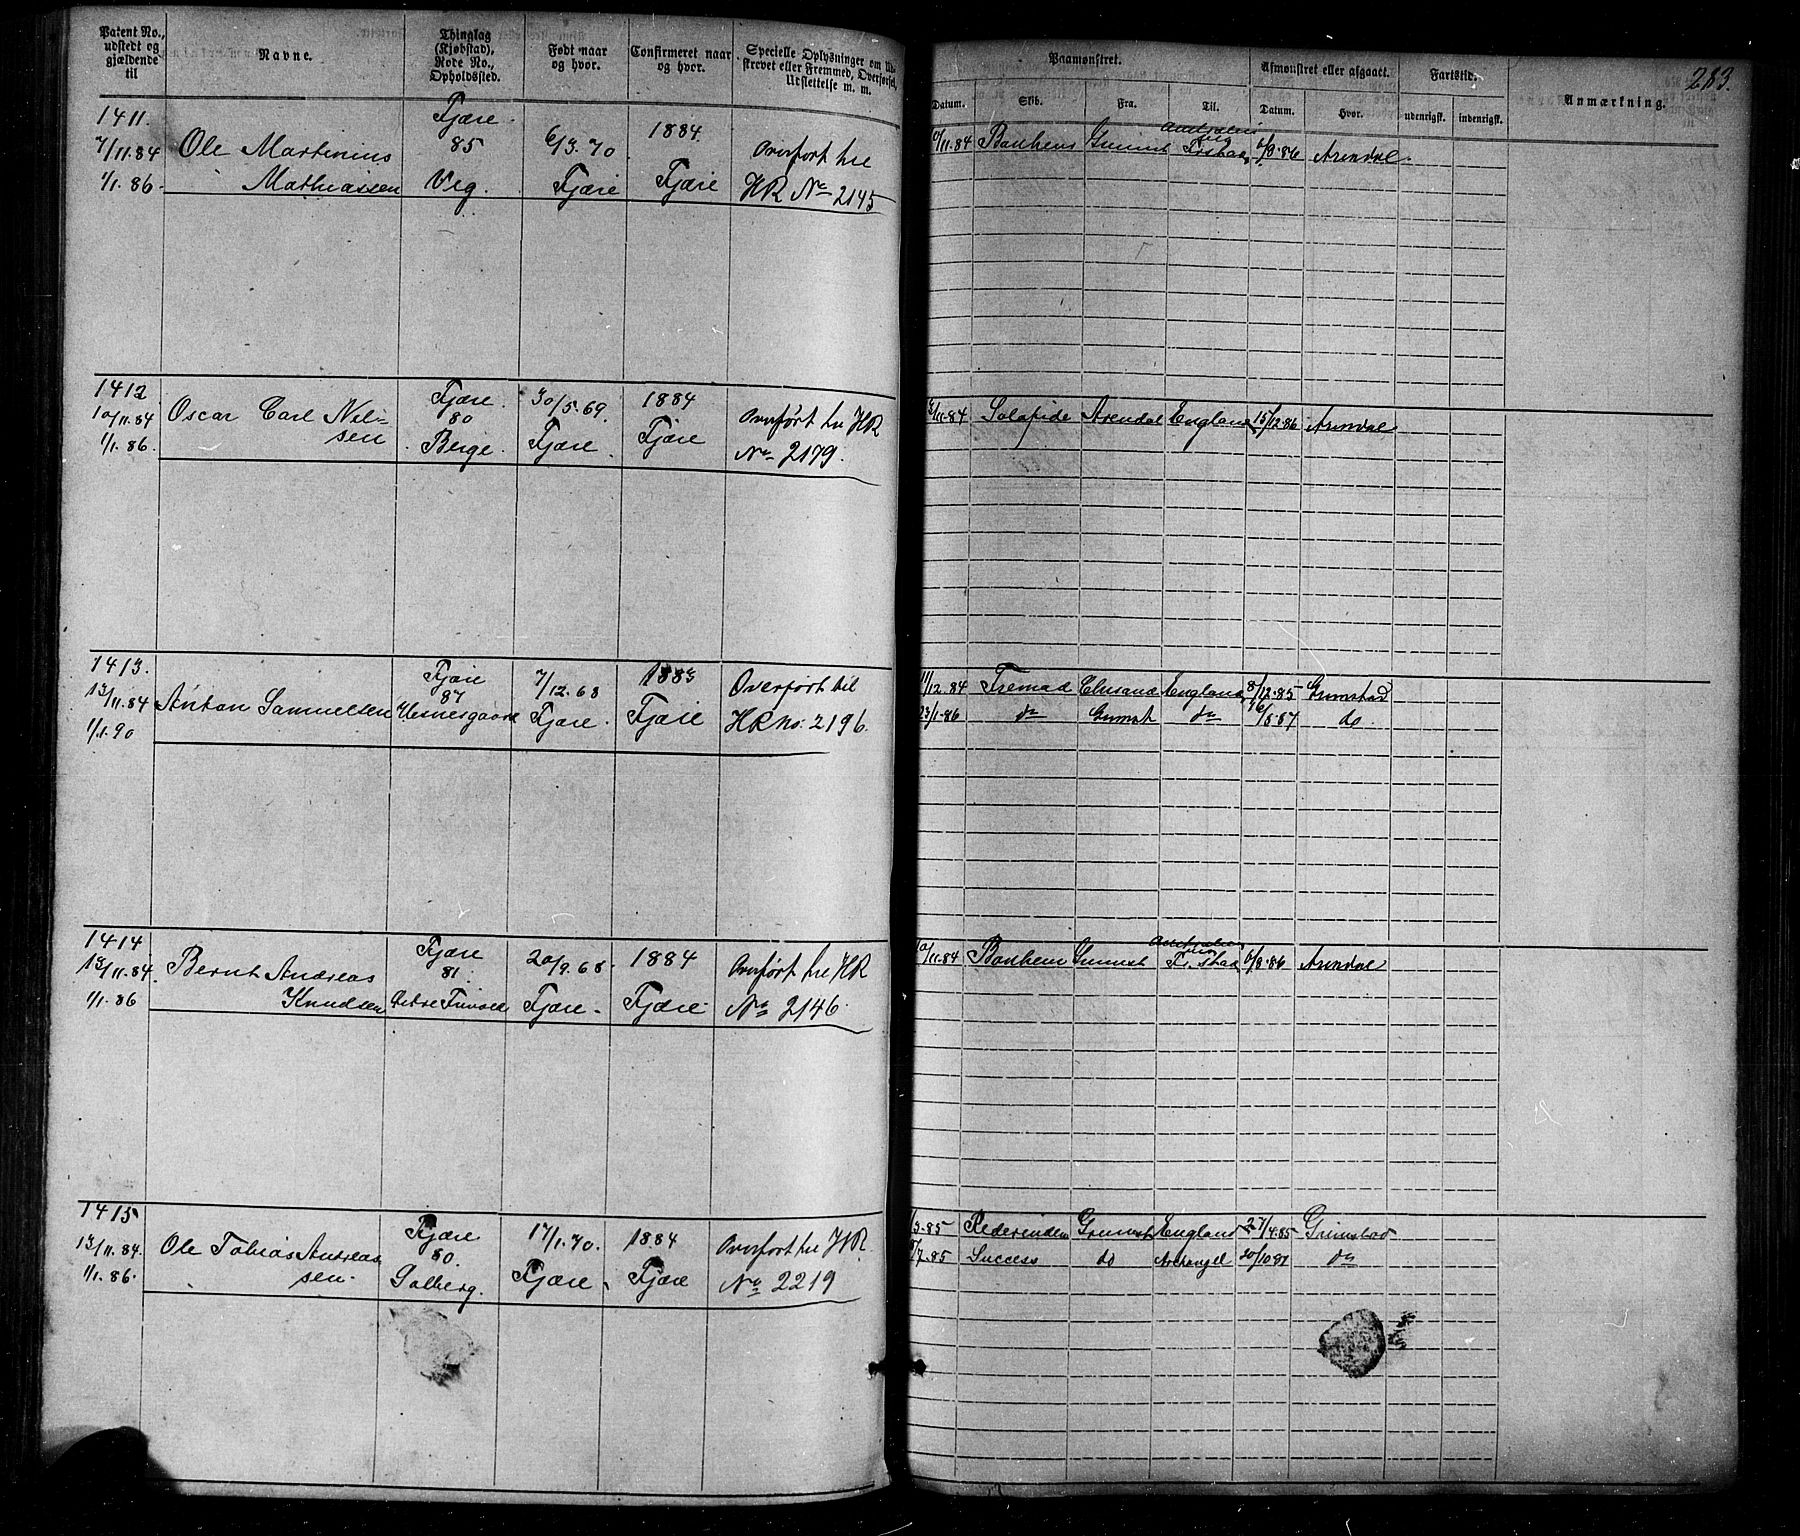 Patent No., udstedt og gjældende til
Navne.
Thinglag (Kjøbstad), Rode No., Opholdssted.
Født naar og hvor.
Confirmeret naar og hvor.
Specielle Oplysninger om Udskrevet eller Fremmed, Overførsel, Udslettelse m. m.
Paamønstret.
Datum.
Skib.
Fra.
Til.
Afmønstret eller afgaaet.
Datum.
Hvor.
Fartstid.
udenrigsk.
indenrigsk.
Anmærkning.
283.
1411.
7/11.84
1/1.86.
Ole Martinius
Mathiassen
Fjære
85
Vig.
6/3.70
Fjære
1884
Fjære
Overført til
HR No 2145
/11.84
Grimst
6/8.86
Arendal
1412
10/11.84
1/1.86.
Oscar Carl Niel-
sen
Fjære
80
Beige.
30/5.69
Fjære
1884
Fjære
Overført til HR
No 2179.
/11.84
Solafide
Arendal
England
15/12.86
Arendal
1413.
13/11.84
1/1.90
Anton Samuelsen
Fjære
87
Hesnesgaard
7/12.68
Fjære
1883
Fjære
Overført til
HR no: 2196.
11/12.84
Fremad
Chrsand
England
8/12.85
Grimstad
23/1.86
do
Grimst
do
do.
1414
13/11.84
1/1.86
Bernt Andreas
Knudsen
Fjære
81.
20/9.68
Fjære
1884
Fjære
Overført til HR
No 2146
/11.84
Grimst
6/8.86
Arendal
1415
13/11.84.
1/1.86.
Ole Tobias Andreas
sen
Fjære
80.
Solberg.
17/1.70.
Fjære
1884
Fjære
Overført til HR
No 2219
/3.85
Grimst
England
27/4.85
Grimstad
/7.85
Success
do
Archangel
do